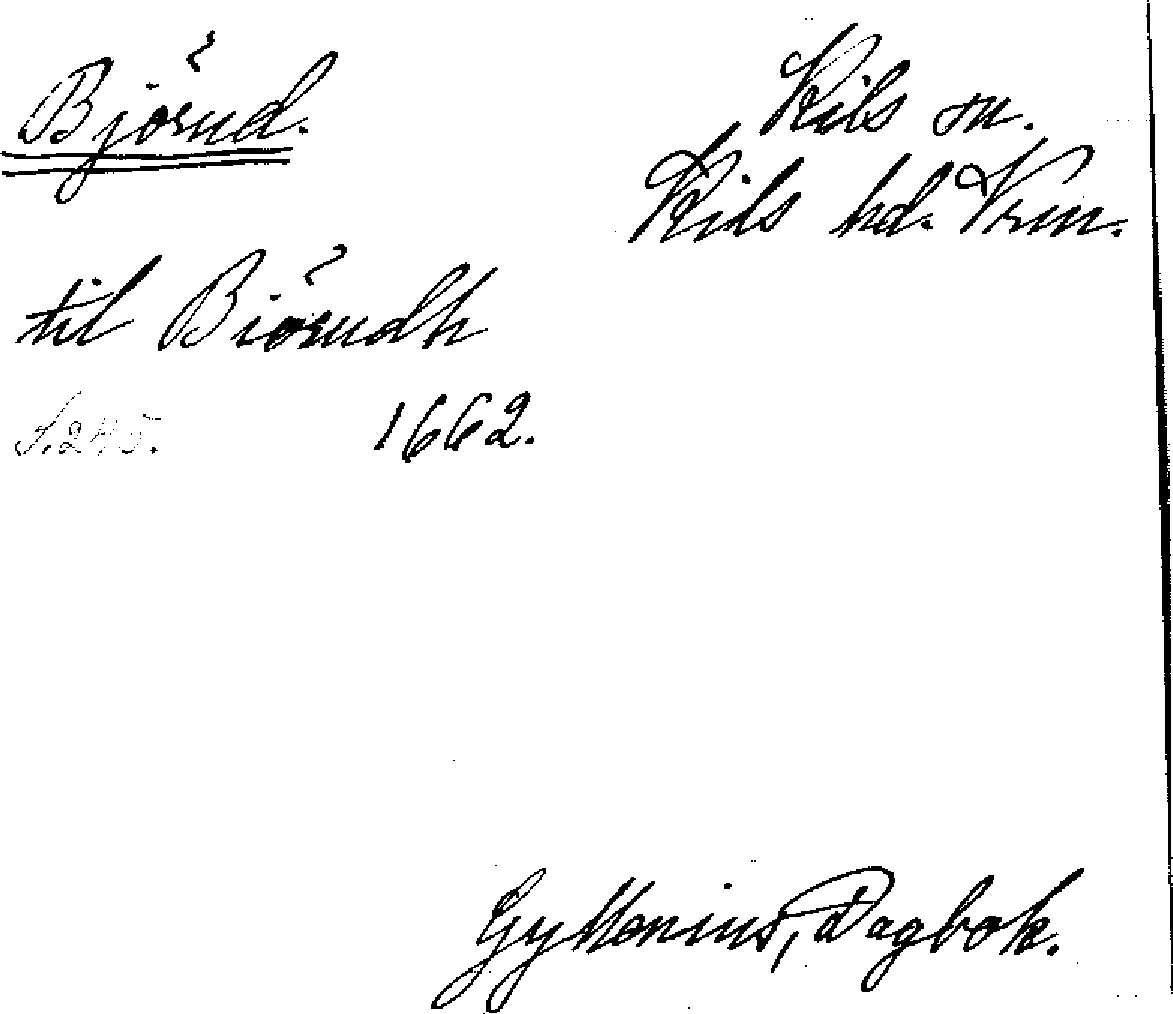 Björud.
Kils sn.
Kils hd. Vrm.
til Biörudh
S. 245. 1662.
Gyllenius, Dagbok.